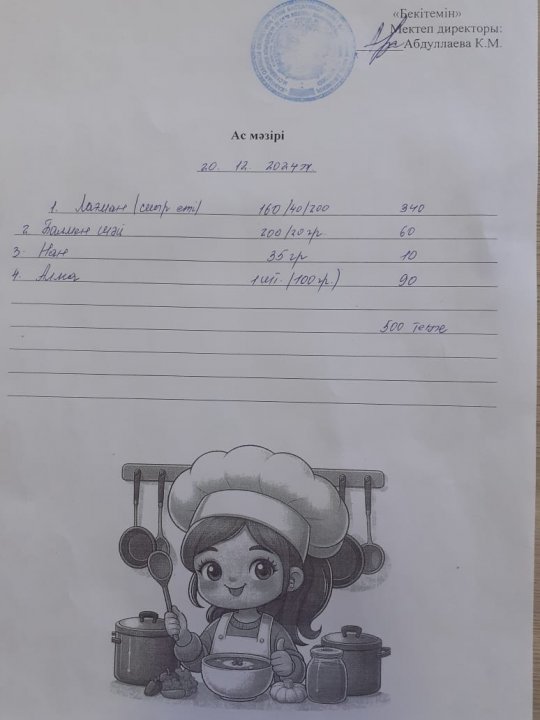 «Бекітемін»
Мектеп директоры:
Абдуллаева К.М.
Ас мәзірі
20. 12. 2024ж.
1. Лагман (сиыр еті) 160/40/200 340
2. Балмен шай 200/20гр. 60
3. Нан 35 гр 10
4. Алма 1шт. (100гр.) 90
500 теңге